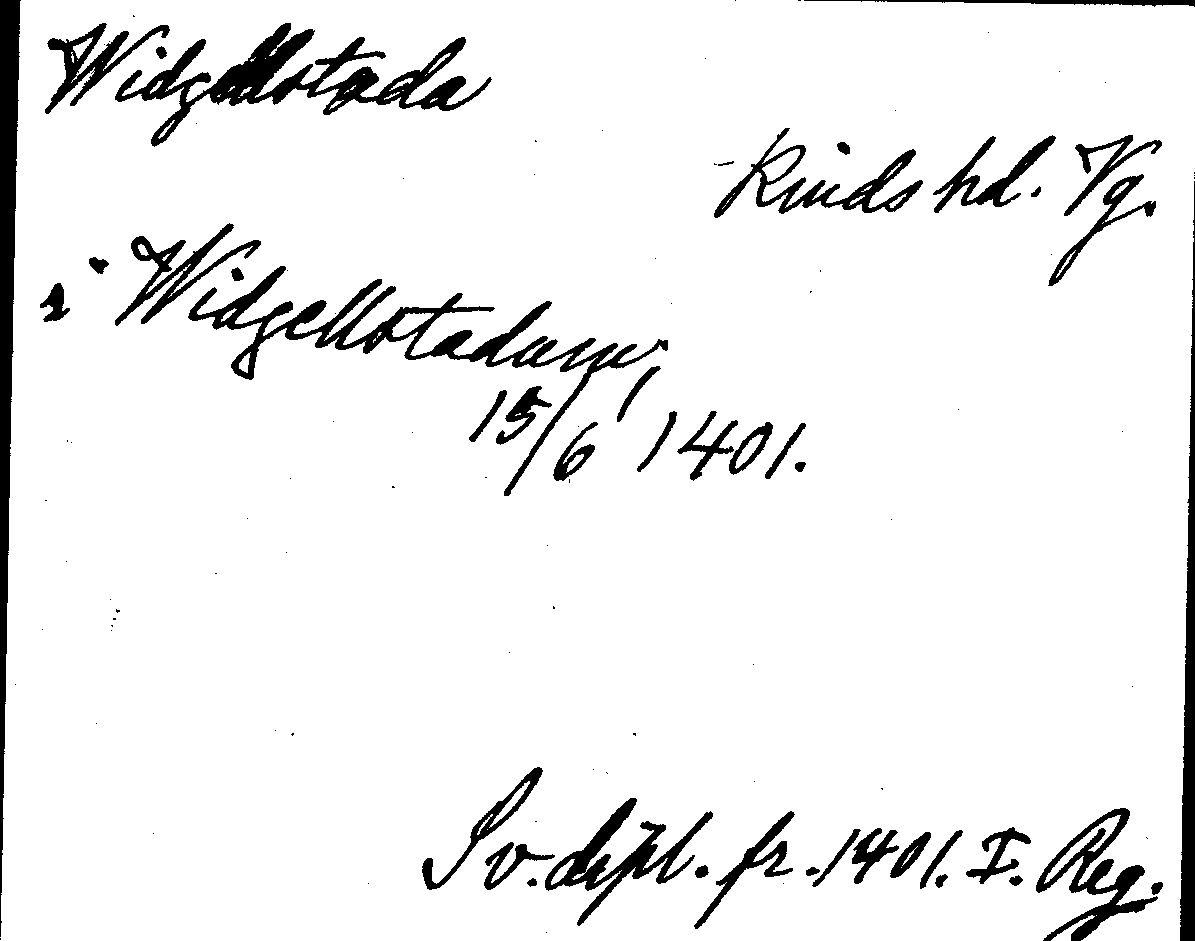 Widgellstada
Kinds hd. Vg.
i Widgellstadum,
15/6 1401.
Sv. dipl. fr. 1401. I. Reg.